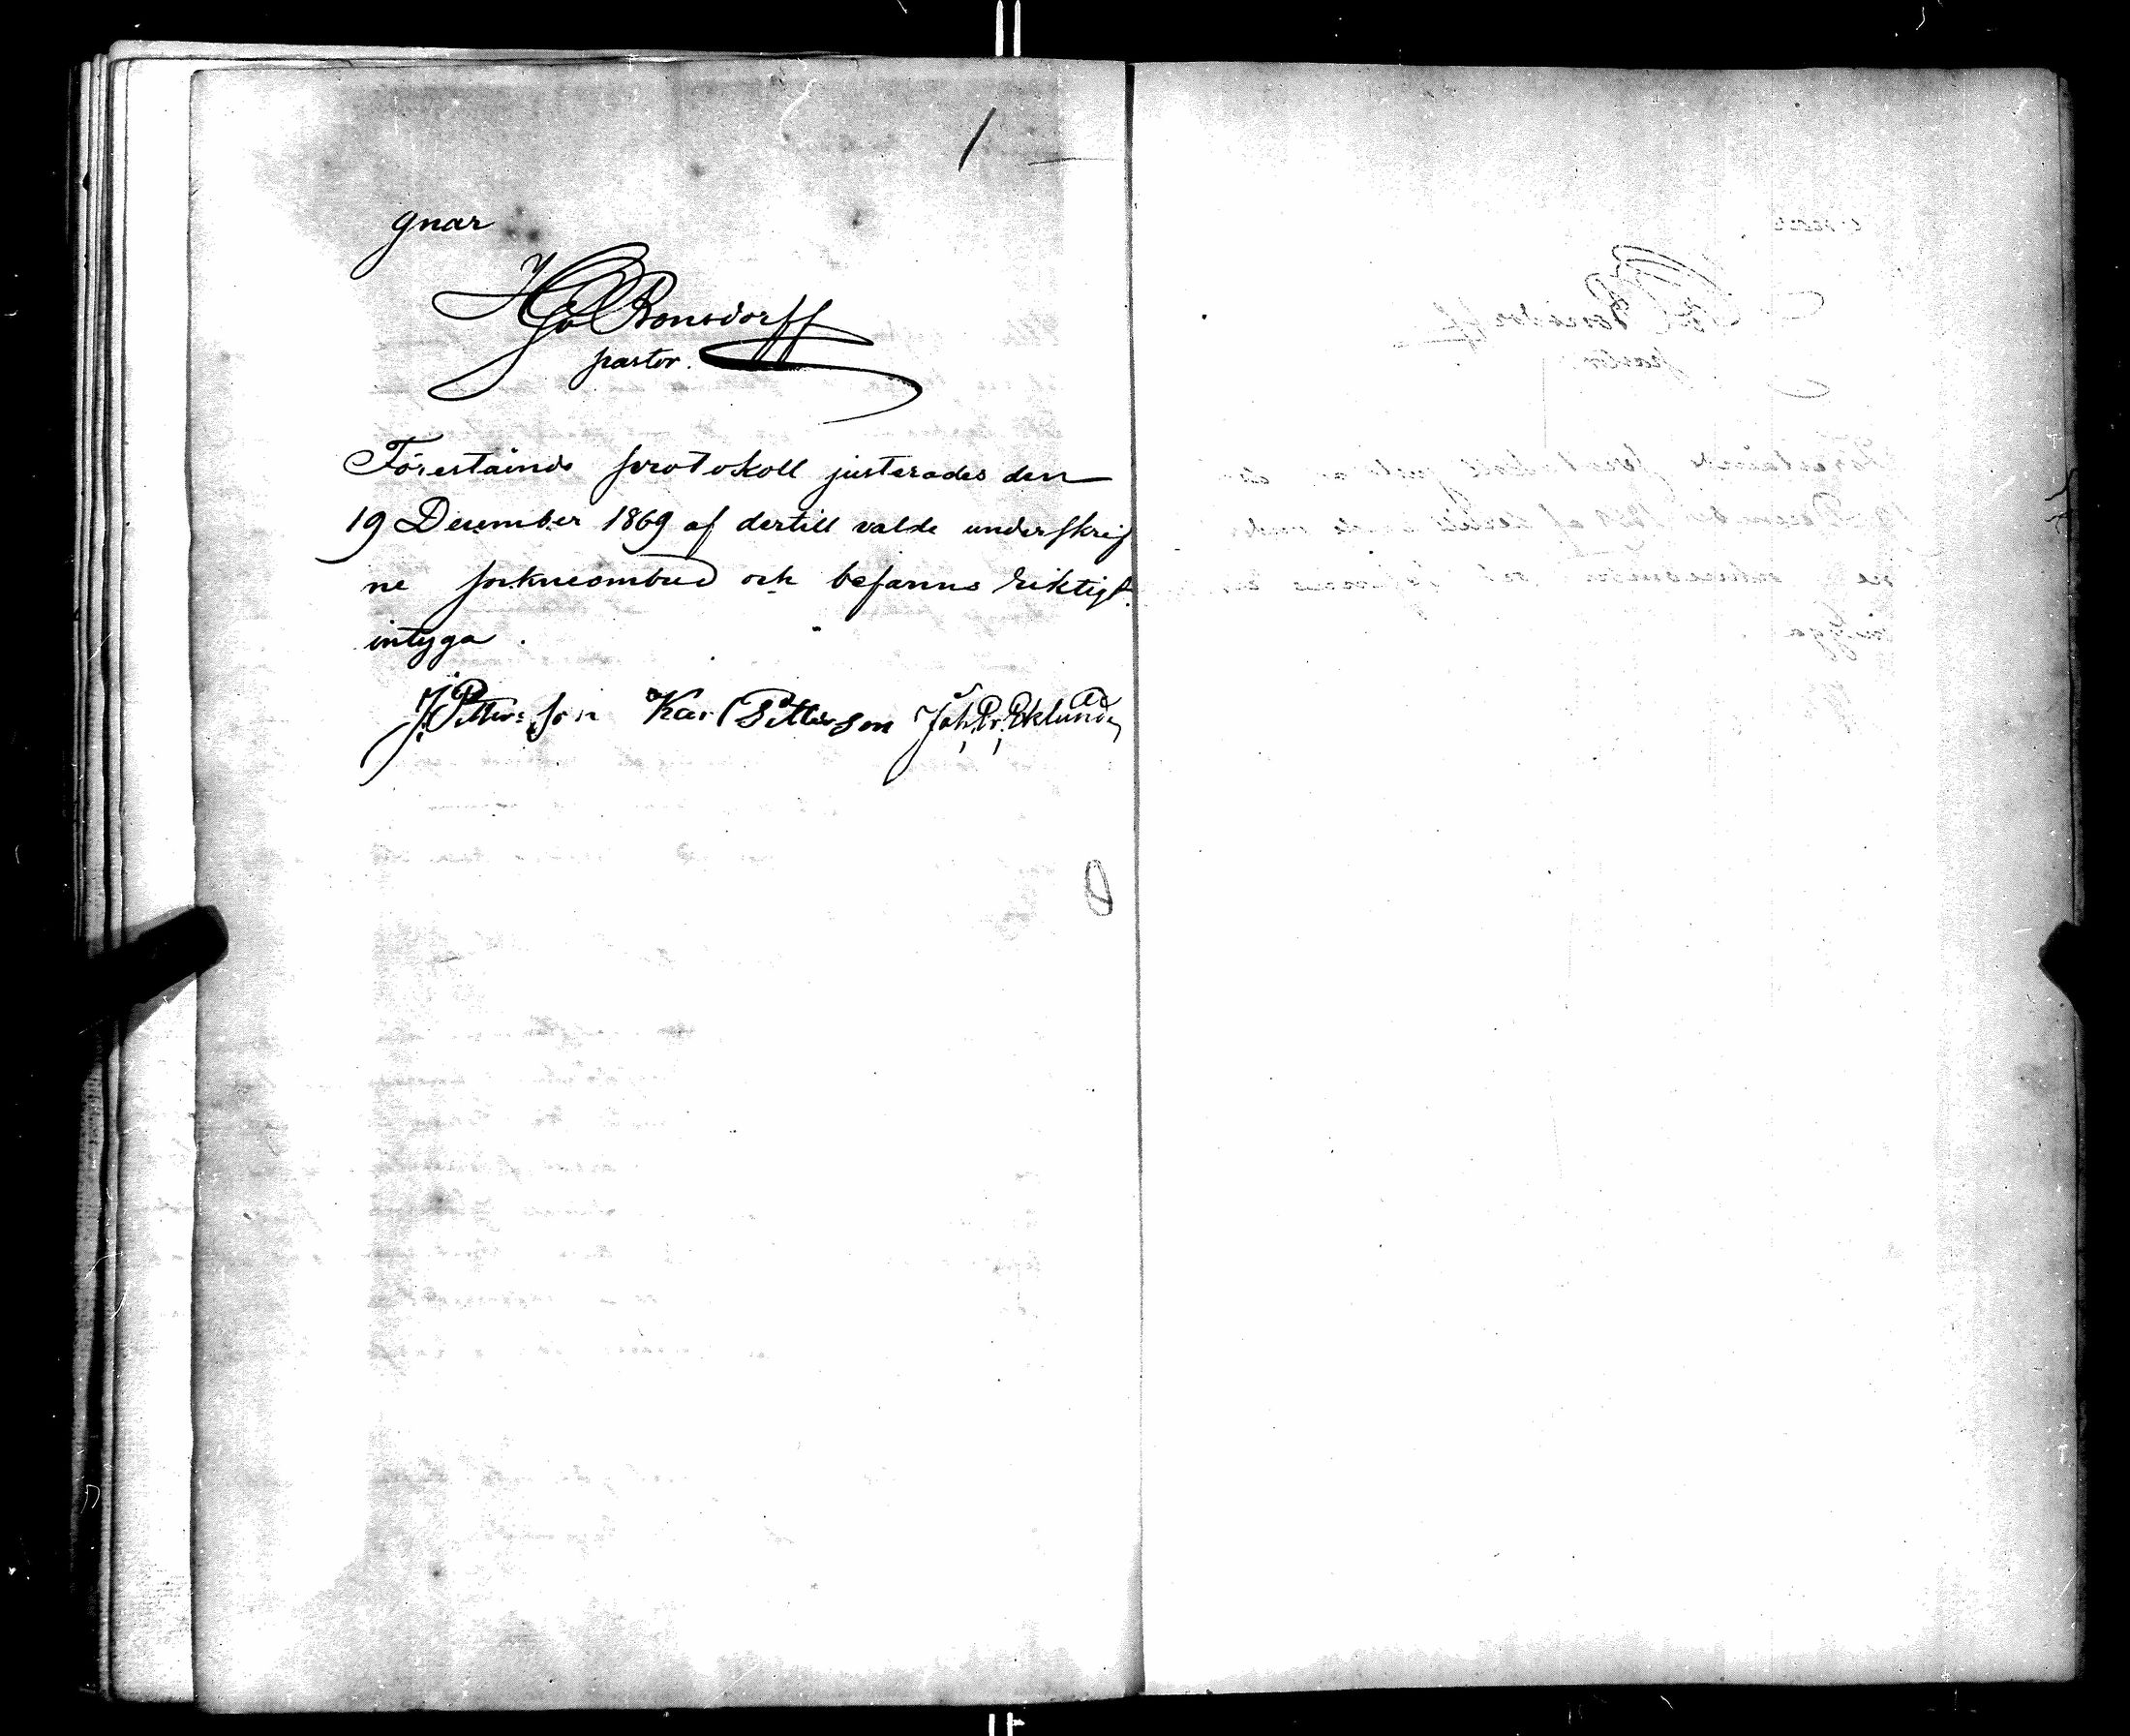 gnar
Bonsdorff
pastor.
Förestående protokoll justerades den
19 December 1869 af dertill valde underskrif
ne sockneombud och befanns riktigt.
intyga.
J. Pettersson Karl Petterson Joh. Pr. Eklund